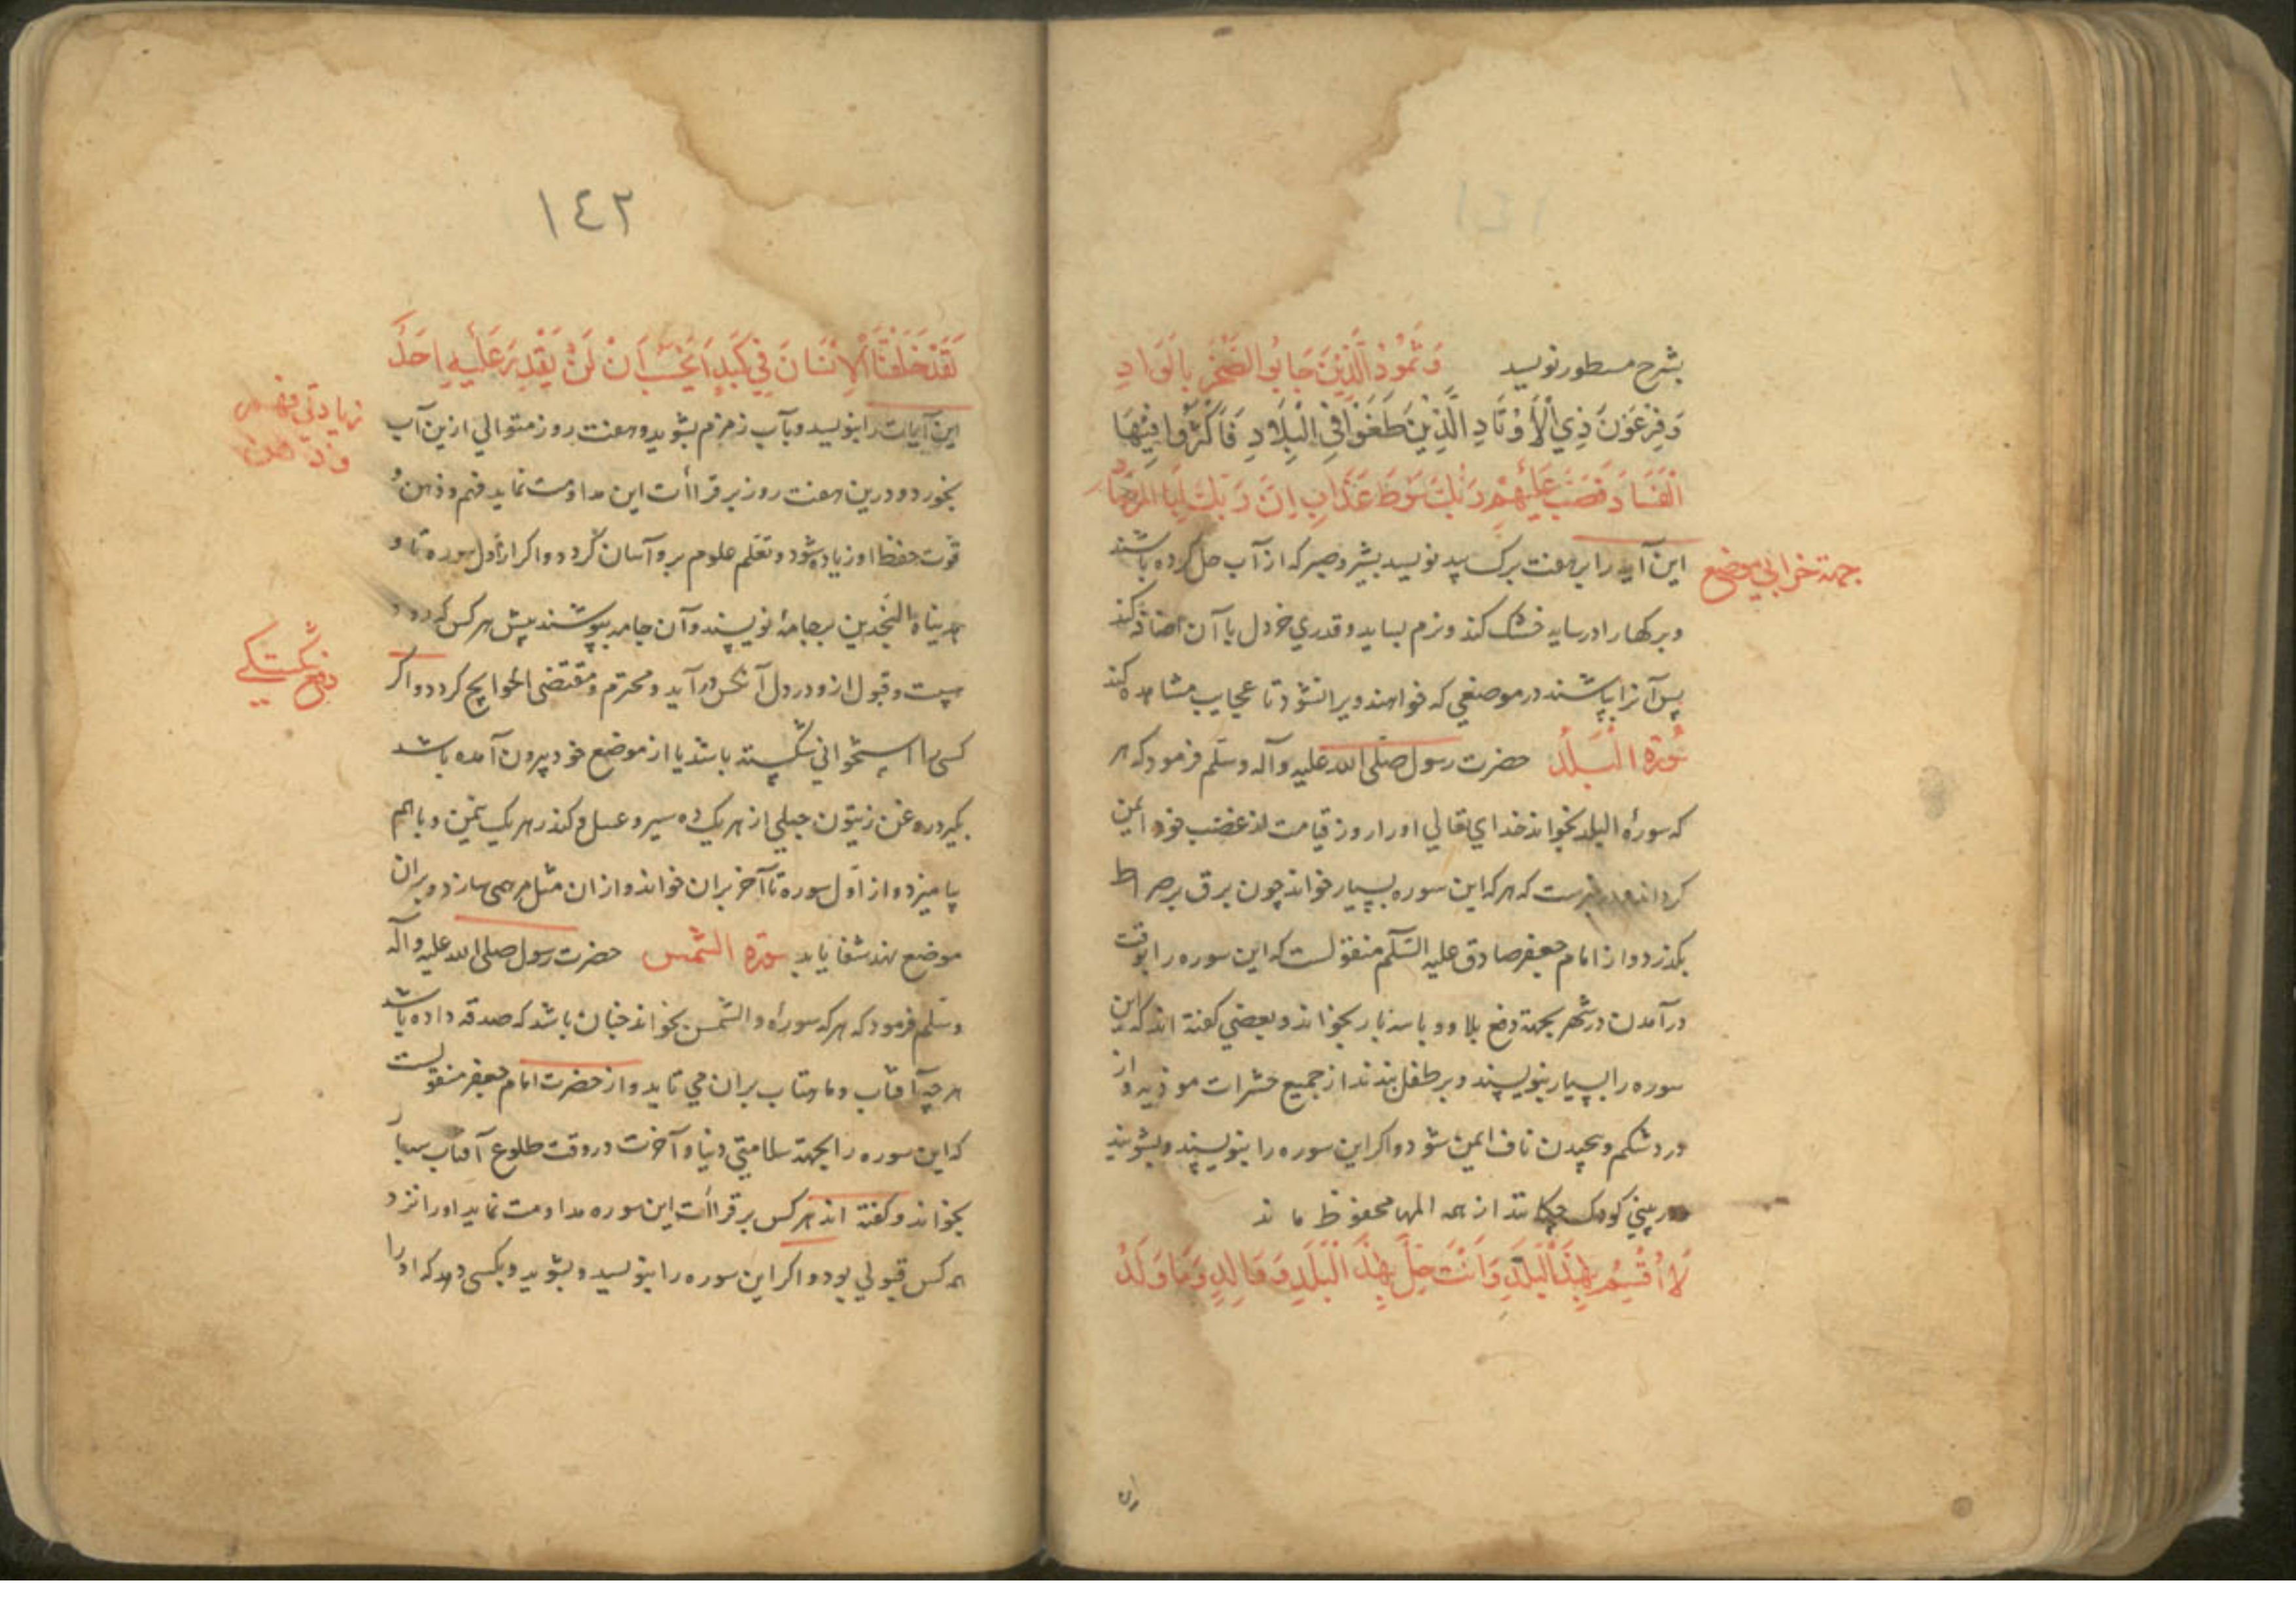 ١٤١
بشرح مسطور نویسد وَثَمُودَ الَّذِينَ جَابُوا الصَّخْرَ بِالْوَادِ
وَفِرْعَوْنَ ذِي الْأَوْتَادِ الَّذِينَ طَغَوْا فِي الْبِلَادِ فَأَكْثَرُوا فِيهَا
الْفَسَادَ فَصَبَّ عَلَيْهِمْ رَبُّكَ سَوْطَ عَذَابٍ اِنَّ رَبَّكَ لَبِالْمِرْصَادِ
این آیه را بر هفت برک بید نویسد بشیر و صبر که از آب حل کرده باشند
جهة خرابی موضع
و برکها را در سایه خشک کند و نرم بساید و قدري خردل با آن اضافه کند
پس آنرا بپاشند در موضعي که خواهند ویران شود تا عجایب مشاهده کند
سُورَة الْبَلَدُ حضرت رسول صلی الله علیه وآله وسلّم فرمود که هر
که سورهٔ البلد بخواند خداي تعالي اورا روز قیامت از غضب خود ایمن
کرداند و در خبرست که هر که این سوره بسیار خواند چون برق بر صراط
بگذرد و از امام جعفر صادق علیه السّلام منقولست که این سوره را بوقت
در آمدن در شهر بجهة دفع بلا و وبا سه بار بخواند و بعضي کفته اند که این
سوره را بسیار بنویسند و بر طفل بندند از جمیع حشرات موذیه و از
درد شکم و پیچیدن ناف ایمن شود و اکر این سوره را بنویسند و بشویند
در بیني کودک چکانند از همه المها محفوظ ماند
لَا أُقْسِمُ بِهَذَا الْبَلَدِ وَأَنْتَ حِلٌّ بِهَذَا الْبَلَدِ وَوَالِدٍ وَمَا وَلَدَ
١٤٢
لَقَدْ خَلَقْنَا الْاِنْسَانَ فِي كَبَدٍ اَيَحْسَبُ اَنْ لَنْ يَقْدِرَ عَلَيْهِ اَحَدٌ
زیادتي فهم
و ذهن
این آیات را بنویسد و بآب زمزم بشوید و هفت روز متوالي ازین آب
بخورد و درین هفت روز بر قراأت این مداومت نماید فهم و ذهن و
قوت حفظ او زیاده شود و تعلم علوم برو آسان کردد و اکر از اول سوره تا و
هدیناه النجدین بر جامهٔ نویسند و آن جامه بپوشند پیش هر کس که رود
دفع شکستکي
هیبت و قبول ازو در دل آنکس درآید و محترم و مقتضی الحوایج کردد و اکر
کسی را استخواني شکسته باشد یا از موضع خود بیرون آمده باشد
بکیرد روغن زیتون جبلي از هر یک ده سیر و عسل و کندر هر یک ثمن و باهم
بیامیزد و از اول سوره تا آخر بران خواند و از ان مثل مرهمی سازد و بران
موضع نهد شفا یابد سورة الشمس حضرت رسول صلی الله علیه وآله
وسلّم فرمود که هر که سورهٔ والشّمس بخواند چنان باشد که صدقه داده باشد
هرچه آفتاب و ماهتاب بران مي تابد و از حضرت امام جعفر منقولست
که این سوره را بجهة سلامتي دنیا و آخرت در وقت طلوع آفتاب
بخواند و کفته اند هر کس بر قراأت این سوره مداومت نماید اورا نزد
همه کس قبولي بود و اکر این سوره را بنویسد و بشوید و بکسی دهد که اورا